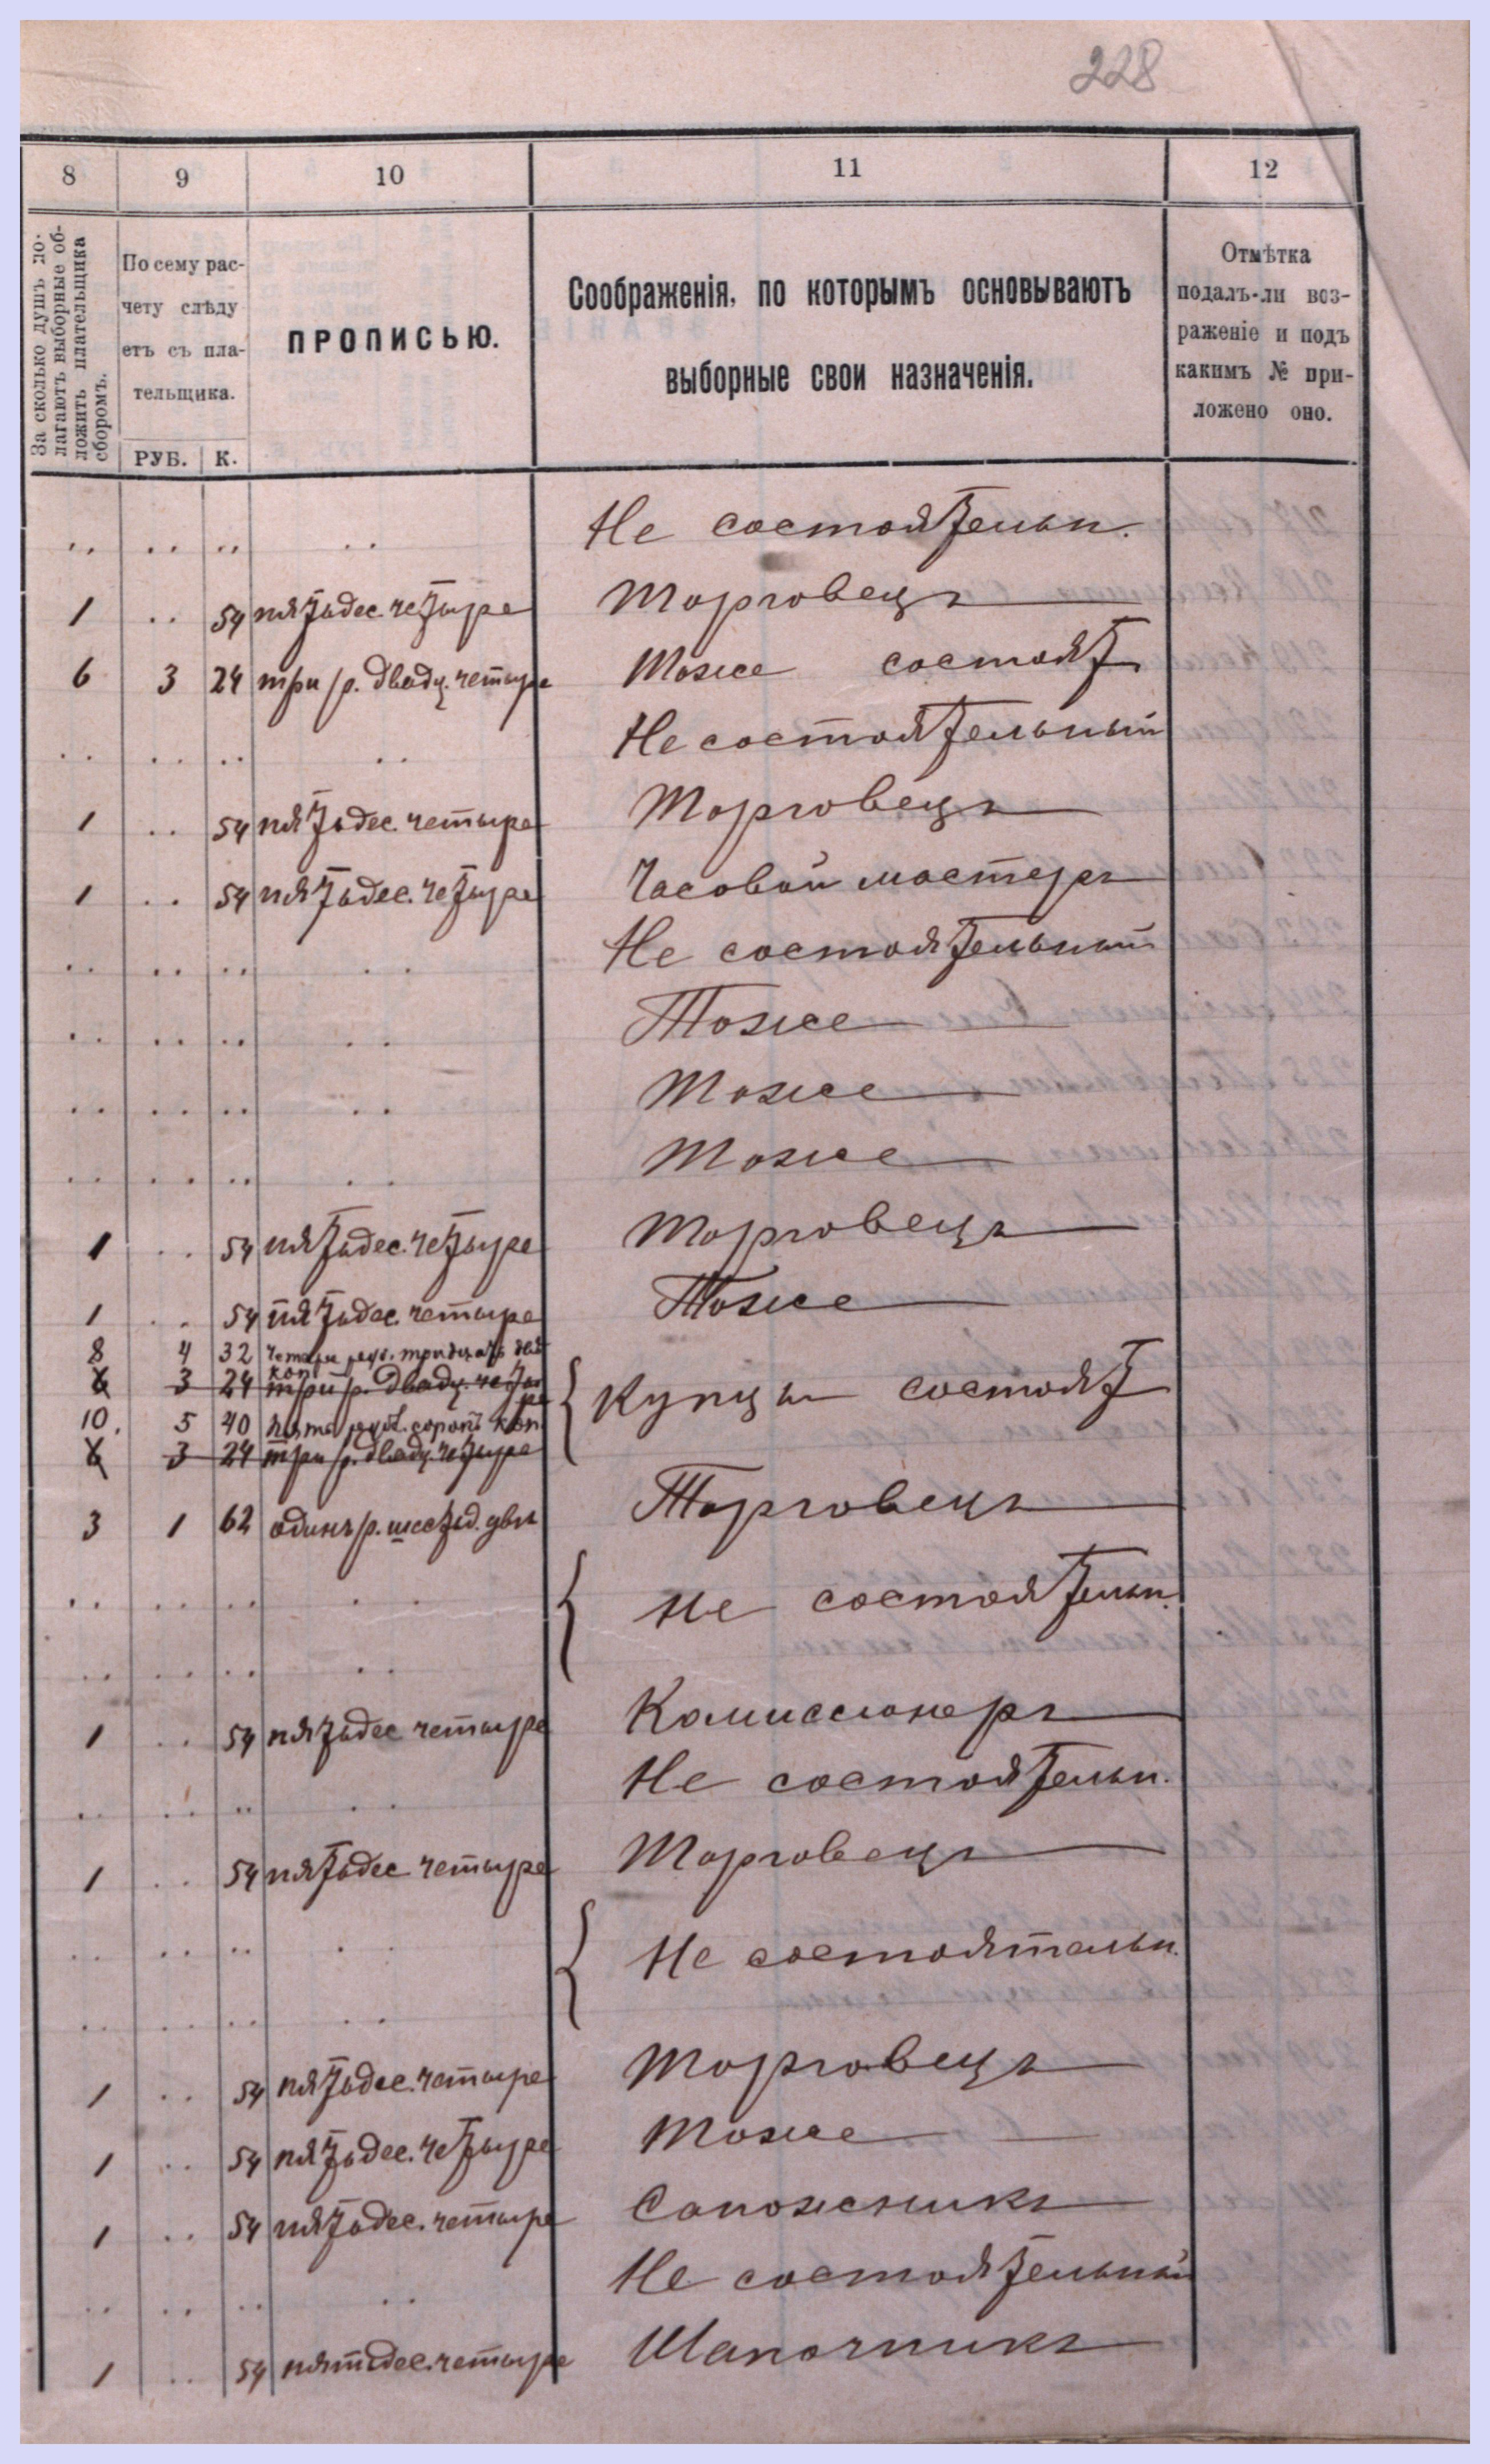 228
8 9 10 11 12
За сколько душъ по-
лагаютъ выборные об-
ложить плательщика
сборомъ.
По сему рас-
чету слѣду
етъ съ пла-
тельщика.
РУБ. К.
ПРОПИСЬЮ.
Соображенія, по которымъ основываютъ
выборные свои назначенія.
Отмѣтка
подалъ-ли воз-
раженіе и подъ
какимъ № при-
ложено оно.
.. .. .. .. Не состоятельн.
1 .. 54 пятьдес. четыре Торговецъ
6 3 24 три р. двадц. четыре Тоже состоят
.. .. .. .. Не состоятельный
1 .. 54 пятьдес. четыре Торговецъ
1 .. 54 пятьдес. четыре Часовой мастеръ
.. .. .. .. Не состоятельный
.. .. .. .. Тоже
.. .. .. .. Тоже
.. .. .. .. Тоже
1 .. 54 пятьдес. четыре Торговецъ
1 .. 54 пятьдес. четыре Тоже
8 4 32 четыре руб. тридцать две
коп
6 3 24 три р. двадц. четы
ре
Купцы состоят
10. 5 40 пять руб. сорокъ коп
6 3 24 три р. двадц. четыре
3 1 62 одинъ р. шестьд. два Торговецъ
.. .. .. .. Не состоятельн.
.. .. .. ..
1 .. 54 пятьдес четыре Комиссионеръ
.. .. .. .. Не состоятельн.
1 .. 54 пятьдес четыре Торговецъ
.. .. .. .. Не состоятельн.
.. .. .. ..
1 .. 54 пятьдес. четыре Торговецъ
1 .. 54 пятьдес. четыре Тоже
1 .. 54 пятьдес. четыре Сапожникъ
.. .. .. .. Не состоятельный
1 .. 54 пятьдес. четыре Шапочникъ